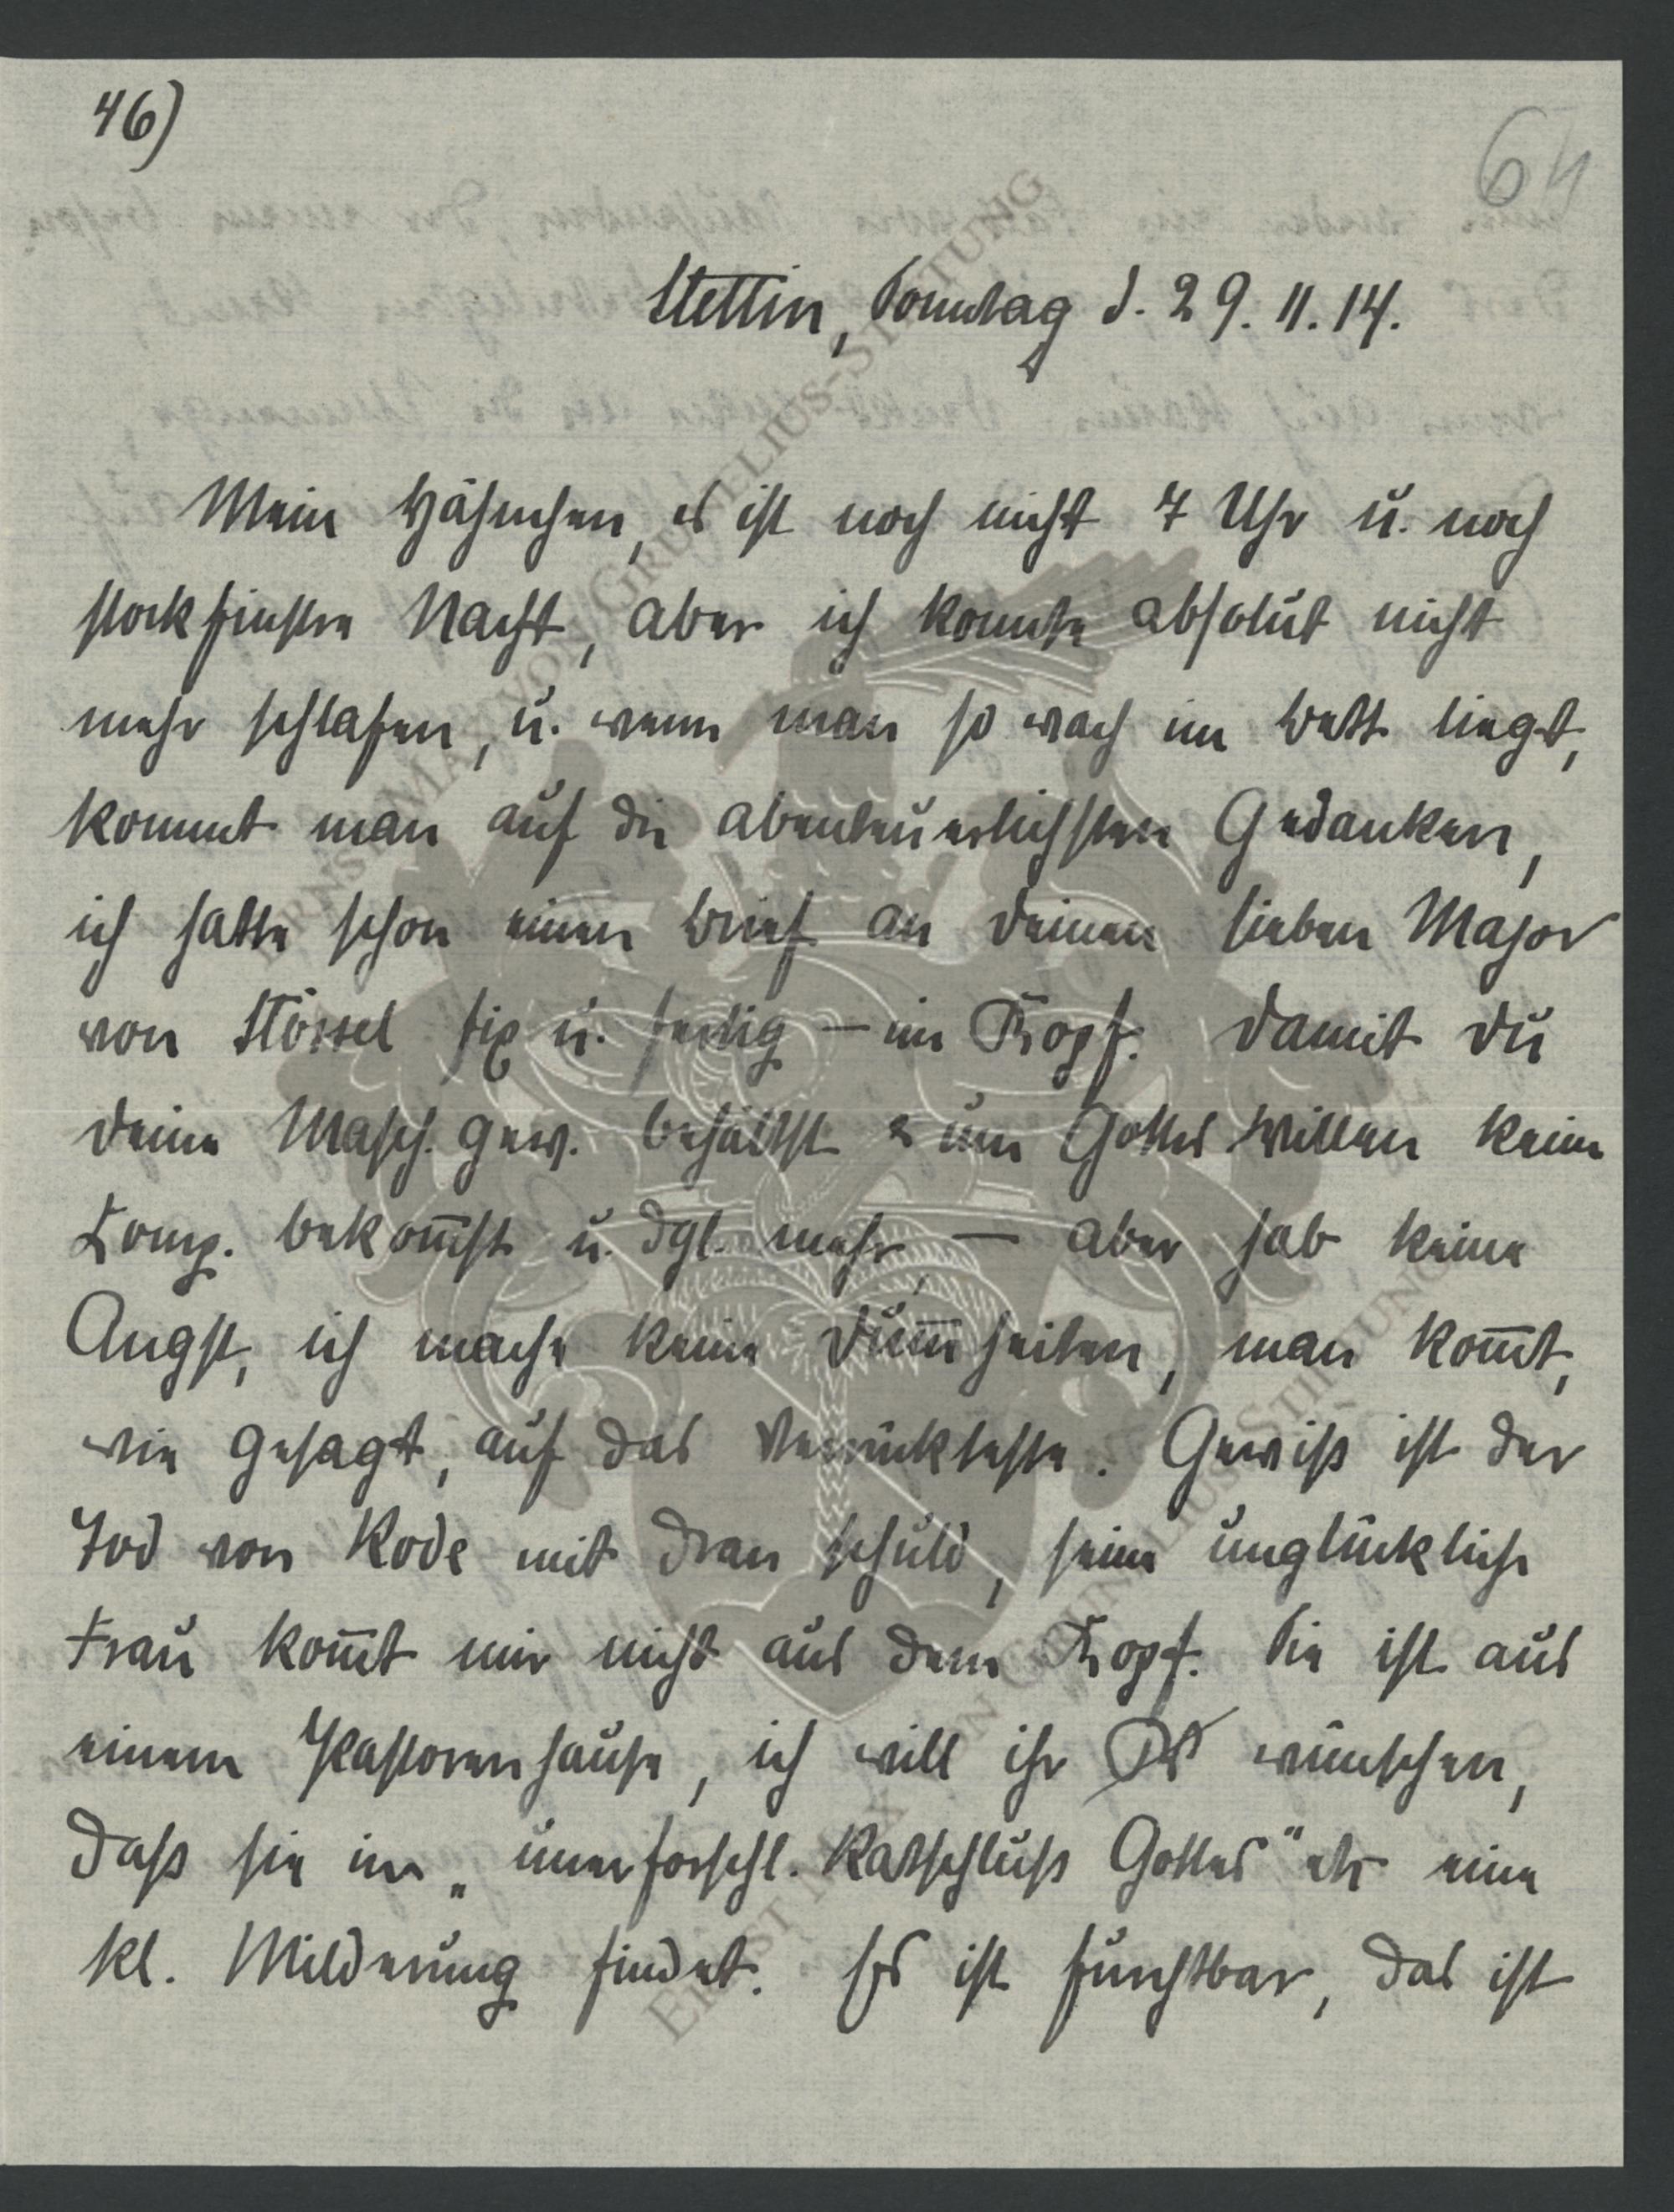 46)
64
Stettin, Sonntag d. 29. 11. 14.
Mein Hähnchen, es ist noch nicht 7 Uhr u. noch
stockfinstre Nacht, aber ich konnte absolut nicht
mehr schlafen, u. wenn man so wach im Bett liegt,
kommt man auf die abenteuerlichsten Gedanken,
ich hatte schon einen Brief an Deinen lieben Major
von Stössel fix u. fertig – im Kopf. Damit Du
Deine Masch. Gew. behältst & um Gottes willen keine
Komp. bekom̅st u. dgl. mehr, – aber hab keine
Angst, ich mache keine Dum̅heiten, man kom̅t,
wie gesagt, auf das Verrückteste. Gewiß ist der
Tod von Rode mit dran schuld, seine unglückliche
Frau kom̅t mir nicht aus dem Kopf. Sie ist aus
einem Pastorenhause, ich will ihr wünschen,
daß sie im „unerforschl. Ratschluß Gottes" eine
kl. Milderung findet. Es ist furchtbar, das ist
ERNST MAX VON GRUNELIUS-STIFTUNG
ERNST MAX VON GRUNELIUS-STIFTUNG